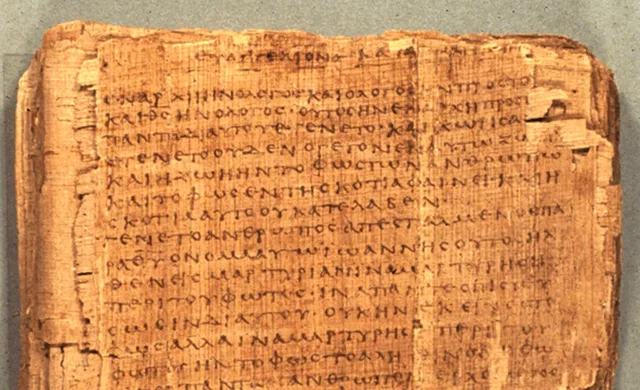 ΕΥΑΓΓΕΛΙΟΝ ΚΑΤΑ
ΕΝ ΑΡΧΗ ΗΝ Ο ΛΟΓΟΣ ΚΑΙ Ο ΛΟΓΟΣ ΗΝ
ΚΑΙ ΘΣ ΗΝ Ο ΛΟΓΟΣ · ΟΥΤΟΣ ΗΝ ΕΝ ΑΡΧΗ ΠΡΟΣ
ΠΑΝΤΑ ΔΙ ΑΥΤΟΥ ΕΓΕΝΕΤΟ · ΚΑΙ ΧΩΡΙΣ
ΕΓΕΝΕΤΟ ΟΥΔΕΝ Ο ΓΕΓΟΝΕΝ ΑΥΤΩ
ΚΑΙ Η ΖΩΗ ΗΝ ΤΟ ΦΩΣ ΤΩΝ ΑΝΘΡΩΠΩ
ΚΑΙ ΤΟ ΦΩΣ ΕΝ ΤΗ ΣΚΟΤΙΑ ΦΑΙΝΕΙ ΚΑΙ Η
ΣΚΟΤΙΑ ΑΥΤΟ ΟΥ ΚΑΤΕΛΑΒΕΝ ·
ΕΓΕΝΕΤΟ ΑΝΘΡΩΠΟΣ ΑΠΕΣΤΑΛΜΕΝΟΣ ΠΑ
ΡΑ ΘΥ ΟΝΟΜΑ ΑΥΤΩ ΙΩΑΝΝΗΣ ΟΥΤΟΣ ΗΛ
ΘΕΝ ΕΙΣ ΜΑΡΤΥΡΙΑΝ ΙΝΑ ΜΑΡΤΥΡΗΣΗ
ΠΕΡΙ ΤΟΥ ΦΩΤΟΣ · ΙΝΑ ΠΑΝΤΕΣ ΠΙΣΤΕΥ
ΣΩΣΙΝ ΔΙ ΑΥΤΟΥ · ΟΥΚ ΗΝ ΕΚΕΙΝΟΣ ΤΟ
ΦΩΣ ΑΛΛΑ ΙΝΑ ΜΑΡΤΥΡΗΣΗ ΠΕΡΙ ΤΟΥ
ΦΩΤΟΣ · ΗΝ ΤΟ ΦΩΣ ΤΟ ΑΛΗΘΙΝΟΝ Ο ΦΩ
ΠΑΝΤΑ ΑΝΘΡΩΠΟΝ